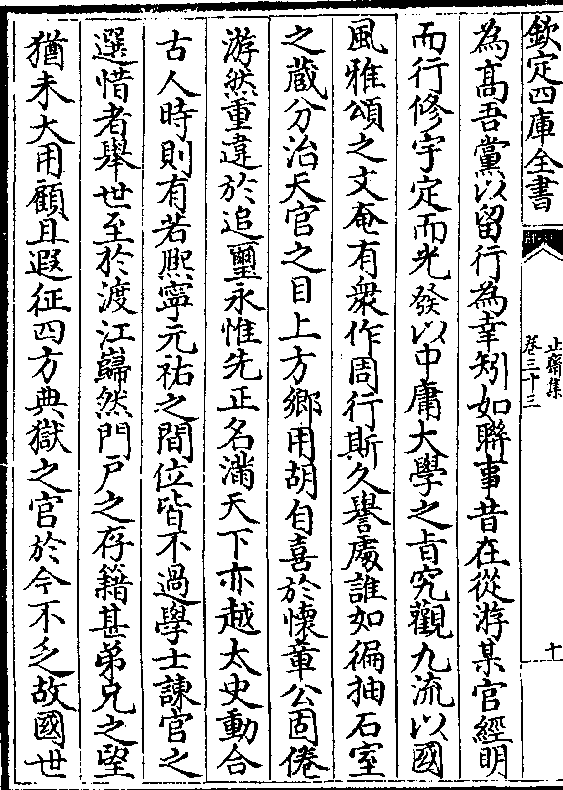 欽定四庫全書
止齋集
卷三十三
十
為高吾黨以留行為幸矧如聯事昔在從游某官經明
而行修宇定而光發以中庸大學之旨究觀九流以國
風雅頌之文奄有衆作周行斯久譽處誰如徧抽石室
之蔵分治天官之目上方鄉用胡自喜於懷章公固倦
游然重違於追璽永惟先正名滿天下亦越太史動合
古人時則有若熙寧元祐之間位皆不過學士諫官之
選惜者舉世至於渡江巋然門户之存籍甚弟兄之望
猶未大用顧且遐征四方典獄之官於今不乏故國世